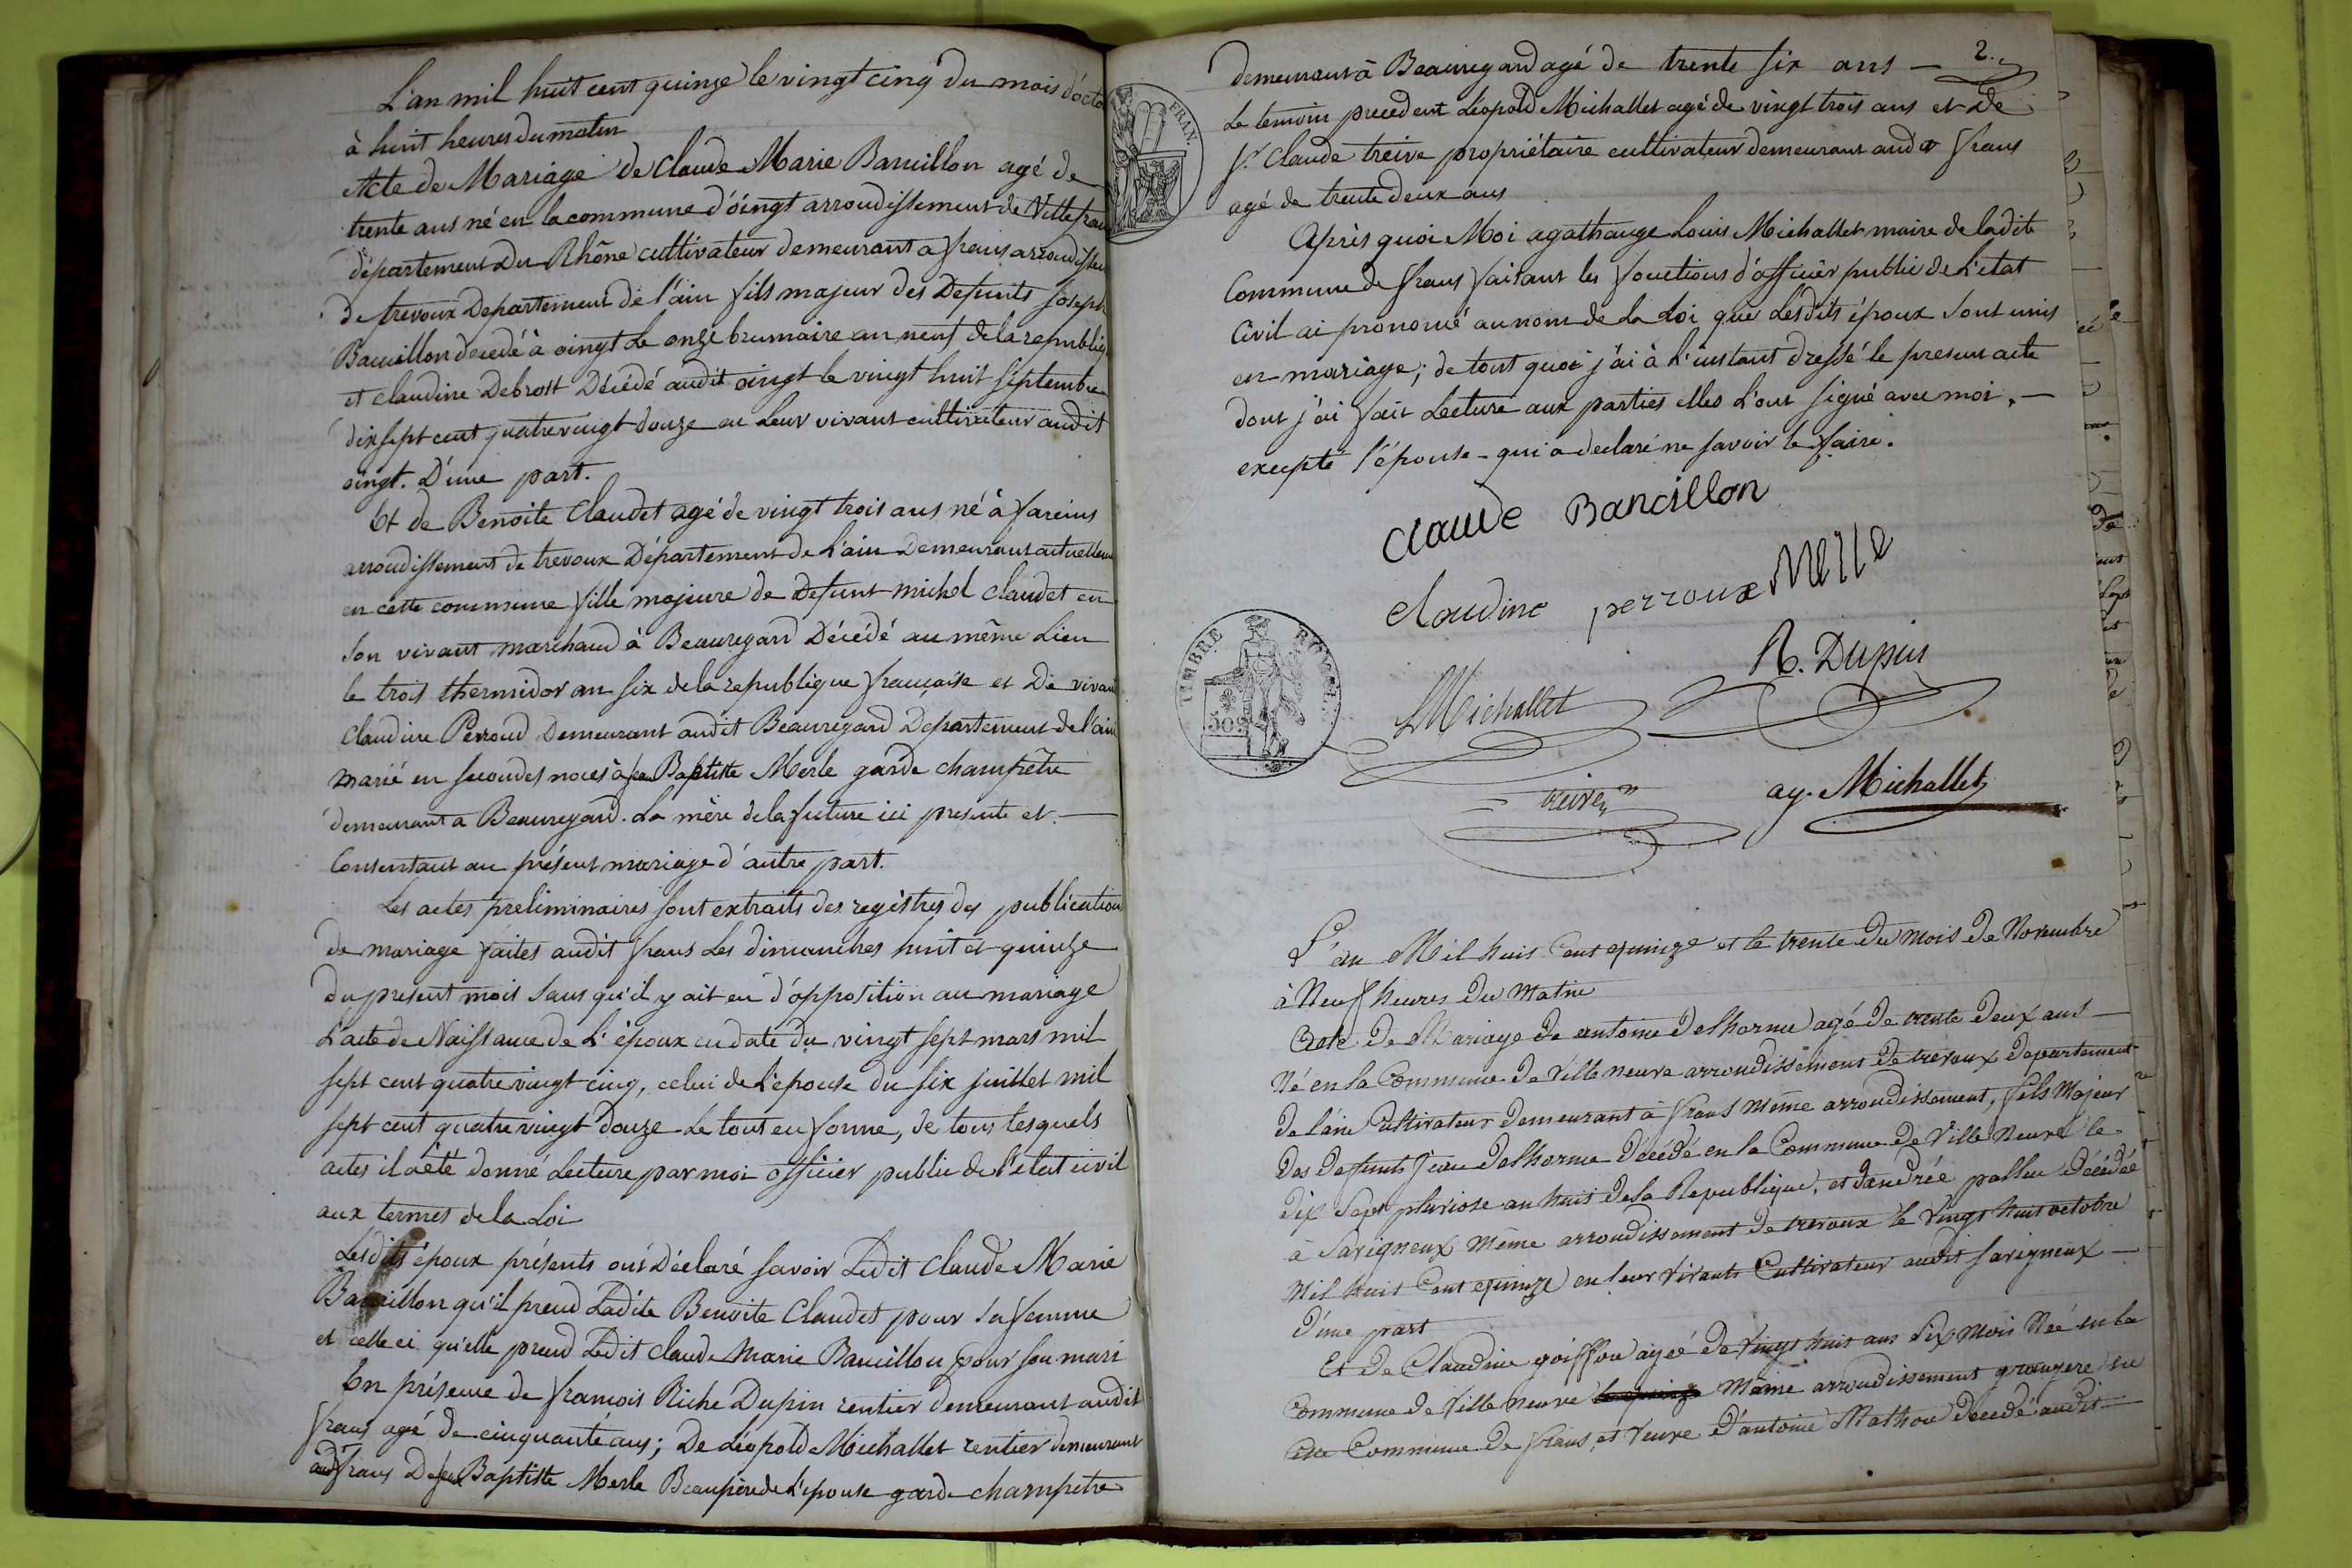 L'an mil huit cent quinze le vingt cinq du mois d'octo
à huit heures du matin
Acte de Mariage de Claude Marie Bancillon agé de
trente ans né en la commune d'óingt arrondissement de Villefran
département du Rhône cultivateur demeurant a frans arrondissem
de trevoux Departement de l'ain fils majeur des Defunts Joseph
Bancillon decedé à oingt le onze brumaire an neuf de la republiq
et claudine Debrost Décédé audit oingt le vingt huit septembre
dix sept cent quatre vingt douze en leur vivant cultivateur audit
oingt. D'une part.
Et de Benoite Claudet agé de vingt trois ans né à fareins
arrondissement de trevoux Département de l'ain Demeurant actuellem
en cette commune fille majeure de Defunt michel claudet en
son vivant marchand à Beauregard Décédé au même Lieu
le trois thermidor an six de la republique française et De vivan
Claudine Perroud Demeurant audit Beauregard Departement de l'ain
marié en secondes noces à jean Baptiste Merle garde champêtre
demeurant a Beauregard. La mère de la future ici presente et —
Consentant au présent mariage d'autre part.
Les actes preliminaires sont extraits des registres des publication
de mariage faites audit frans les dimanches huit et quinze
du present mois sans qu'il y ait eu d'opposition au mariage
L'acte de Naissance de L'époux en date du vingt sept mars mil
sept cent quatre vingt cinq, celui de l'epouse du six juillet mil
sept cent quatre vingt douze le tout en forme, de tous lesquels
actes il a été donné Lecture par moi officier public de l'etat civil
aux termes de la Loi
Lesdits époux présents ont Déclaré savoir Ledit Claude Marie
Bancillon qu'il prend Ladite Benoite Claudet pour sa femme
et celle ci qu'elle prend Ledit claude Marie Bancillon pour son mari
En présence de francois Riché Dupin rentier demeurant audit
frans agé de cinquante ans; De Léopold Michallet rentier demeurant
audt frans De jean Baptiste Merle Beaupère de L'epouse garde champetre
FRAN.
2.
demeurant à Beauregard agé de trente six ans —
Le temoin precedent Léopold Michallet agé de vingt trois ans et De
sr. Claude treive propriétaire cultivateur demeurant aud frans
agé de trente deux ans
Après quoi Moi agathange Louis Michallet maire de ladite
Commune de frans faisant les fonctions d'officier public de L'etat
Civil ai prononcé au nom de La Loi que Lesdits époux sont unis
en mariage; de tout quoi j'ai à l'instant dressé le present acte
dont j'ai fait Lecture aux parties elles L'ont signé avec moi. —
excepté l'épouse - qui a declaré ne savoir le faire.
Claude Bancillon
claudine perroux Merle
R. Dupin
TIMBRE ROYAL
50c
LMichallet
treive
ag. Michallet
L'an Mil huit Cent quinze et le trente du mois de Novembre
à Neuf heures du Matin
Acte de Mariage de antoine Delhorme agé de trente Deux ans —
Né en la Commune de Ville neuve arrondissement de trevoux Departement
de l'ain Cultivateur Demeurant à frans même arrondissement, fils Majeur
des Defunts Jean Delhorme Décédé en la Commune de Ville Neuve le
dix Sept pluviose an huit de la Republique, et Dandrée pallue Décédée
à Savigneux même arrondissement de trevoux le Vingt huit octobre
Mil huit Cent quinze en leur Vivants Cultivateur audit Savigneux —
d'une part
Et de Claudine goiffon agéé de Vingt huit ans Six mois Née en la
Commune de Ville neuve même arrondissement grangere en
Commune de frans, et Veuve D'antoine Mathon Decedé audit —